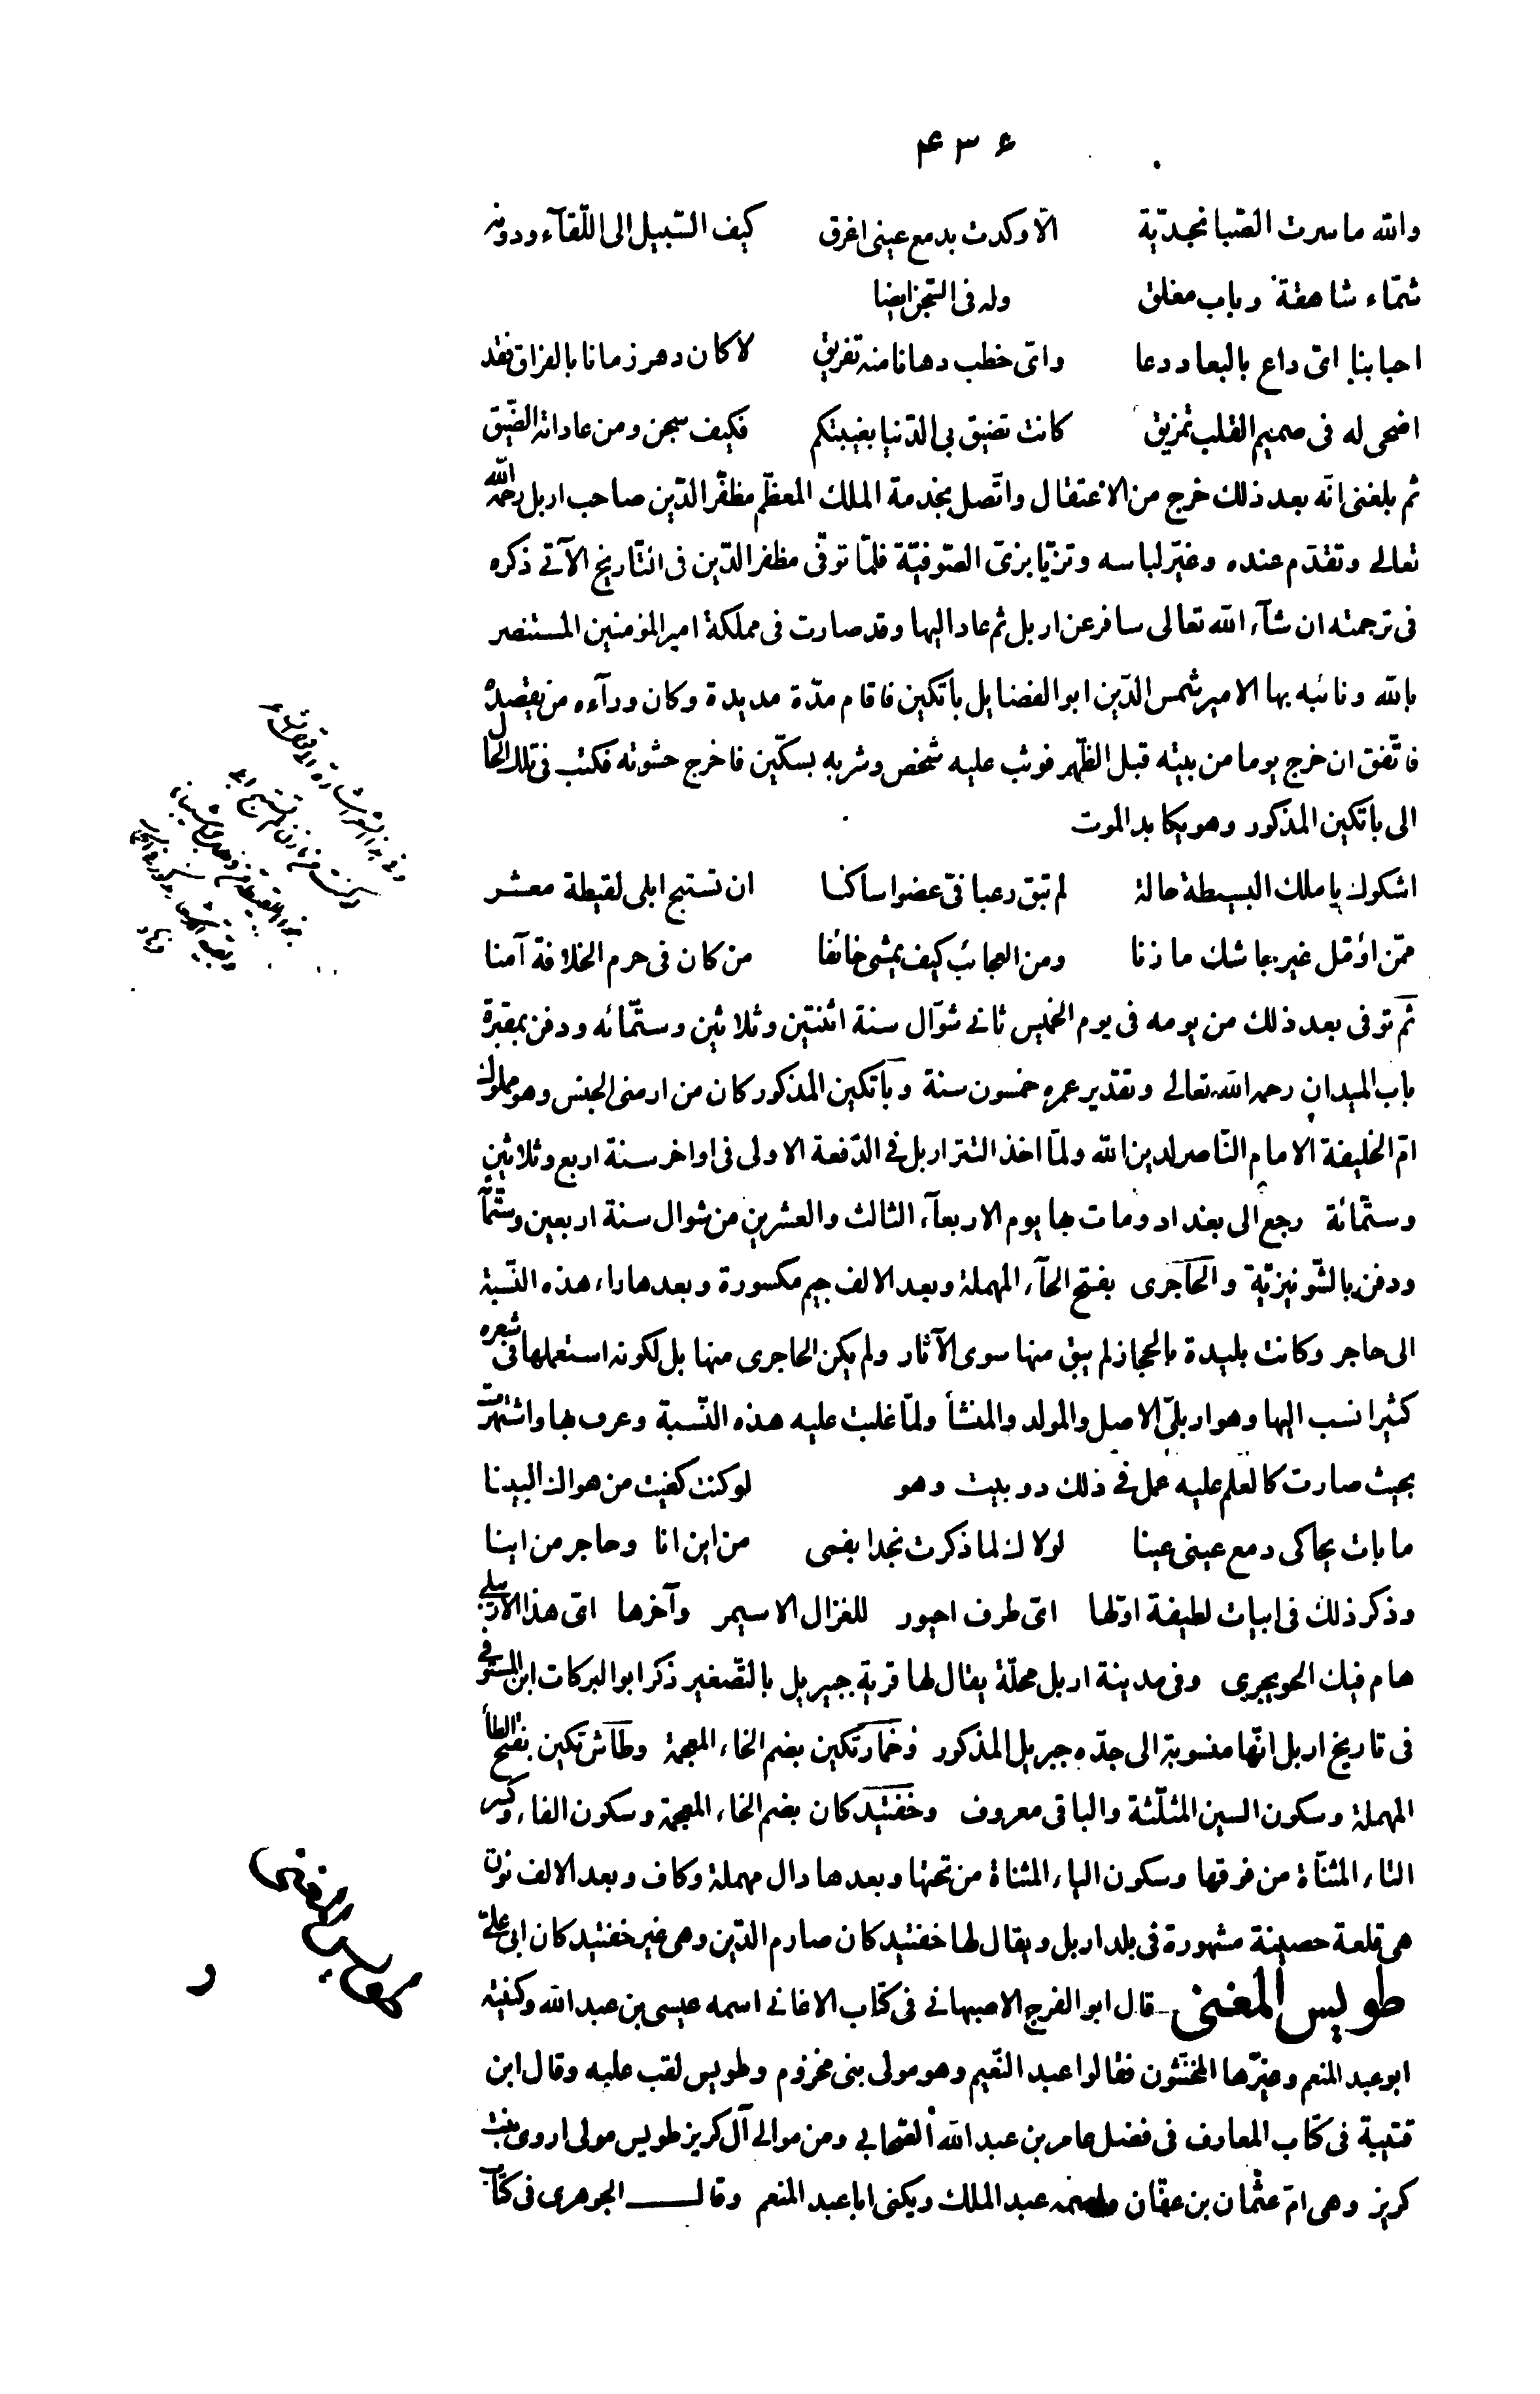 ۴۳۶
والله ما سرت الصّبا نجديّة الّا وكدت بدمع عينى اغرق كيف السّبيل الى اللّقآء ودونه
شمّاء شاهقة وباب مغلق وله فى السّجن ايضا
احبابنا اىّ داع بالبعاد دعا واىّ خطب دهانا منه تفريق لا كان دهر زمانا بالفراق فقد
اضحى له فى صميم القلب تمزيق كانت تضيق بى الدّنيا بغيبتكم فكيف سجن ومن عاداته الضّيق
ثم بلغنى انّه بعد ذلك خرج من الاعتقال واتّصل بخدمة الملك المعظّم مظفّر الدّين صاحب اربل رحمه الله
تعالى وتقدّم عنده وغيّر لباسه وتزيّا بزىّ الصّوفيّة فلمّا توفّى مظفر الدّين فى التّاريخ الآتى ذكره
فى ترجمته ان شآء الله تعالى سافر عن اربل ثم عاد اليها وقد صارت فى مملكة امير المؤمنين المستنصر
بالله ونائبه بها الامير شمس الدّين ابو الفضايل باتكين فاقام مدّة مديدة وكان ورآءه من يقصده
فاتّفق ان خرج يوما من بيته قبل الظّهر فوثب عليه شخص وضربه بسكّين فاخرج حشوته فكتب فى تلك الحال
الى باتكين المذكور وهو يكابد الموت
اشكوك يا ملك البسيطة حالة لم تبق رعبا فىّ عضوا ساكنا ان تستبح ابلى لقيطة معشر
ممّن اؤمّل غير جاشك مازنا ومن العجائب كيف يمشى خائفا من كان فى حرم الخلافة آمنا
ثم توفى بعد ذلك من يومه فى يوم الخميس ثانى شوّال سنة اثنتين وثلاثين وستّمائه ودفن بمقبرة
باب الميدان رحمه الله تعالى وتقدير عمره خمسون سنة وباتكين المذكور كان من ارمنى الجنس وهو مملوك
امّ الخليفة الامام النّاصر لدين الله ولمّا اخذ التتر اربل فى الدّفعة الاولى فى اواخر سنة اربع وثلاثين
وستّمائة رجع الى بغداد ومات بها يوم الاربعآء الثالث والعشرين من شوال سنة اربعين وستّمآ
ودفن بالشّونيزيّة والحاجرى بفتح الحآء المهملة وبعد الالف جيم مكسورة وبعدها راء هذه النّسبة
الى حاجر وكانت بليدة بالحجاز لم يبق منها سوى الآثار ولم يكن الحاجرى منها بل لكونه استعملها فى شعره
كثيرا نسب اليها وهو اربلىّ الاصل والمولد والمنشأ ولمّا غلبت عليه هذه النّسبة وعرف بها واشتهرت
بحيث صارت كالعلم عليه عمل فى ذلك دوبيت وهو لو كنت كفيت من هواك البينا
ما بات يحاكى دمع عينى عينا لولاك لما ذكرت نجدا بفمى من اين انا وحاجر من اينا
وذكر ذلك فى ابيات لطيفة اوّلها اىّ طرف احيور للغزال الاسيمر وآخرها اىّ هذا الاربلى
هام فيك الحويجرى وفى مدينة اربل محلّة يقال لها قرية جبيريل بالتّصغير ذكر ابو البركات ابن المستوفى
فى تاريخ اربل انّها منسوبة الى جدّه جبريل المذكور وخمارتكين بضم الخاء المعجمة وطاش تكين بفتح الطآ
المهملة وسكون السين المثلّثة والباقى معروف وخفتيدكان بضم الخاء المعجمة وسكون الفاء وكسر
التاء المثنّاة من فوقها وسكون الياء المثناة من تحتها وبعدها دال مهملة وكاف وبعد الالف نون
هى قلعة حصينة مشهورة فى بلد اربل ويقال لها خفتيدكان صارم الدّين وهى غير خفتيدكان ابى علىّ
طويس المغنى قال ابو الفرج الاصبهانى فى كتاب الاغانى اسمه عيسى بن عبد الله وكنيته
ابو عبد المنعم وغيّرها المخنّثون فقالوا عبد النّعيم وهو مولى بنى مخزوم وطويس لقب عليه وقال ابن
قتيبة فى كتاب المعارف فى فضل عامر بن عبد الله الصّحابى ومن موالى آل كريز طويس مولى اروى بنت
كريز وهى امّ عثمان بن عفّان واسمه عبد الملك ويكنى ابا عبد المنعم وقال الجوهرى فى كتاب
طويس المغنى